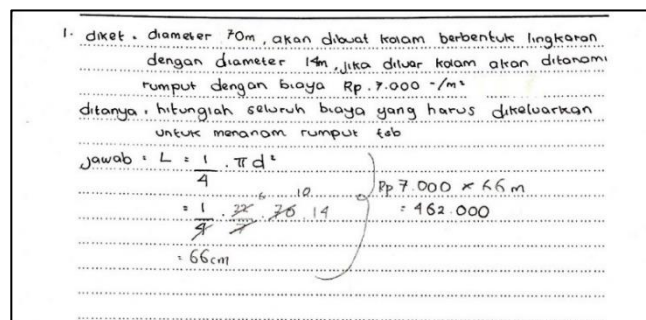 1. diket. diameter 70m, akan dibuat kolam berbentuk lingkaran
dengan diameter 14m, jika diluar kolam akan ditanami
rumput dengan biaya Rp. 7.000 -/m²
ditanya. hitunglah seluruh biaya yang harus dikeluarkan
untuk menanam rumput tsb
jawab = L = 1/4 . π d²
= 1/4 . 22/7 . 70 . 14
6 10
= 66cm
Rp 7.000 × 66 m
= 462.000